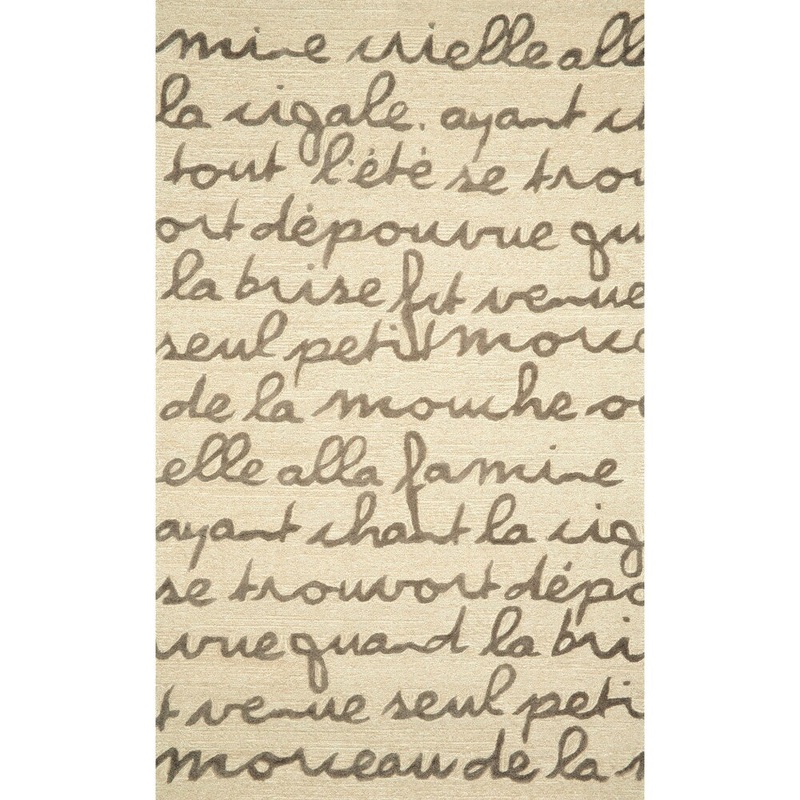 mine crielle alla
la cigale. ayant c
tout l'été se trou
ort dépourvue qu
la brise fut venue
seul petit morc
de la mouche o
elle alla famine
ayant chant la cig
se trouvort dépo
vue quand la bri
t venue seul peti
morceau de la